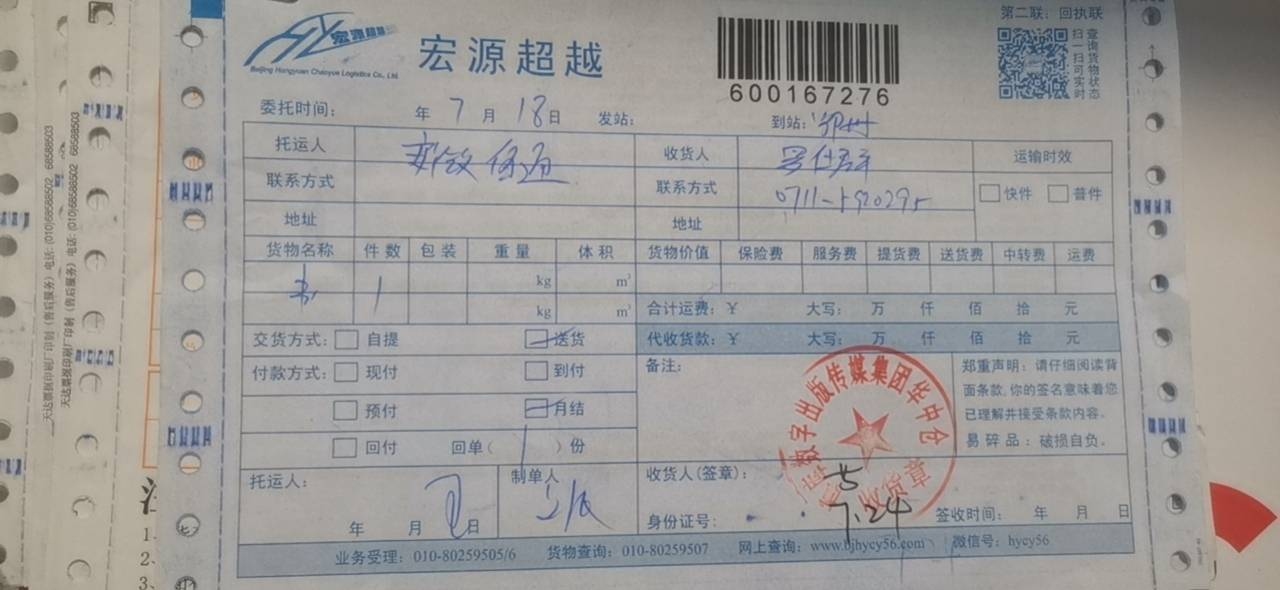 第二联：回执联
宏源超越
宏源超越
Beijing Hongyuan Chaoyue Logistics Co., Ltd.
600167276
查询货物状态
扫一扫可实时
委托时间： 年 7 月 18 日 发站： 到站：鄂州
托运人 收货人 运输时效
联系方式 联系方式 快件 普件
地址 地址
货物名称 件数 包装 重量 体积 货物价值 保险费 服务费 提货费 送货费 中转费 运费
书 1 kg m³
kg m³ 合计运费：￥ 大写： 万 仟 佰 拾 元
交货方式： 自提 送货 代收货款：￥ 大写： 万 仟 佰 拾 元
付款方式： 现付 到付 备注：
预付 月结
回付 回单（ 1 ）份
郑重声明：请仔细阅读背
面条款，你的签名意味着您
已理解并接受条款内容。
易碎品：破损自负。
数字出版传媒集团华中仓
收货章
托运人： 制单人 收货人（签章）：
年 月 日 身份证号： 7.24 签收时间： 年 月 日
业务受理：010-80259505/6 货物查询：010-80259507 网上查询：www.bjhycy56.com 微信号：hycy56
天达票据印刷厂印制（售后服务）电话：(010)68588502 68588503
天达票据印刷厂印制（售后服务）电话：(010)68588502 68588503
1.
2.
3.